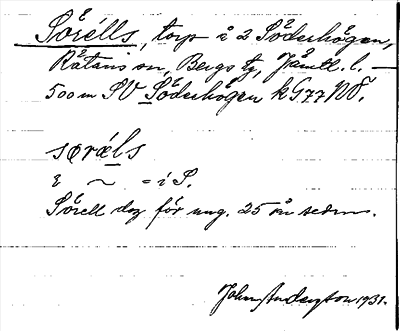 Sörélls, torp å 2 Söderhögen,
Rätans sn, Bergs tg, Jämtl. l. —
500 m SV Söderhögen kG77NV.
sɶréls
ɛ ~ = i S.
Sörell dog för ung. 25 år sedan.
John Anderzton 1931.